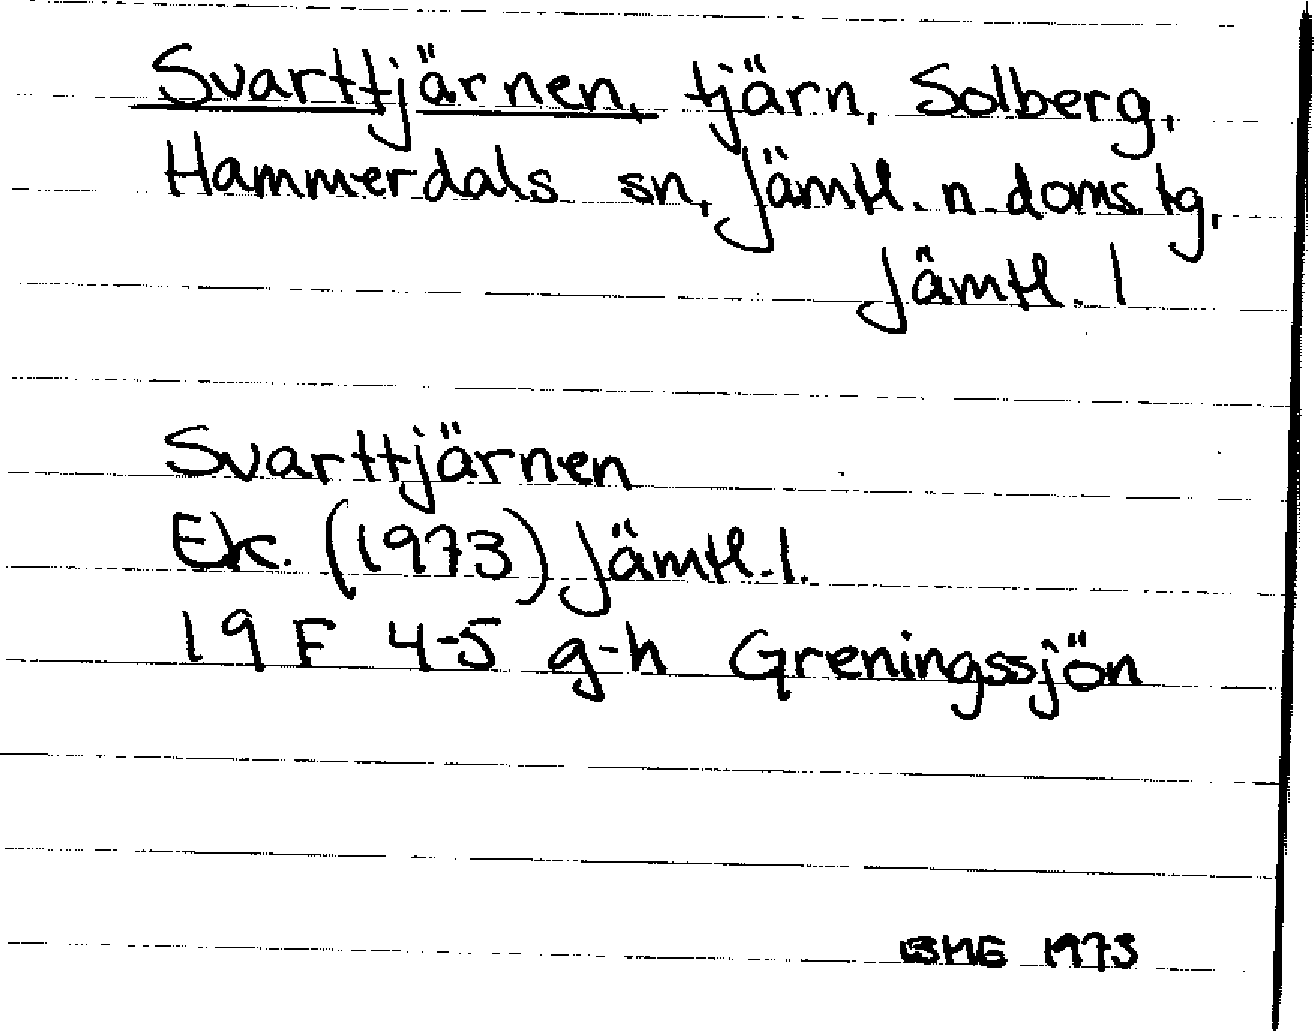 Svarttjärnen, tjärn, Solberg,
Hammerdals sn, Jämtl. n. doms. tg,
Jämtl. l
Svarttjärnen
Ek. (1973) Jämtl. l.
19 F 4-5 g-h Greningssjön
1973